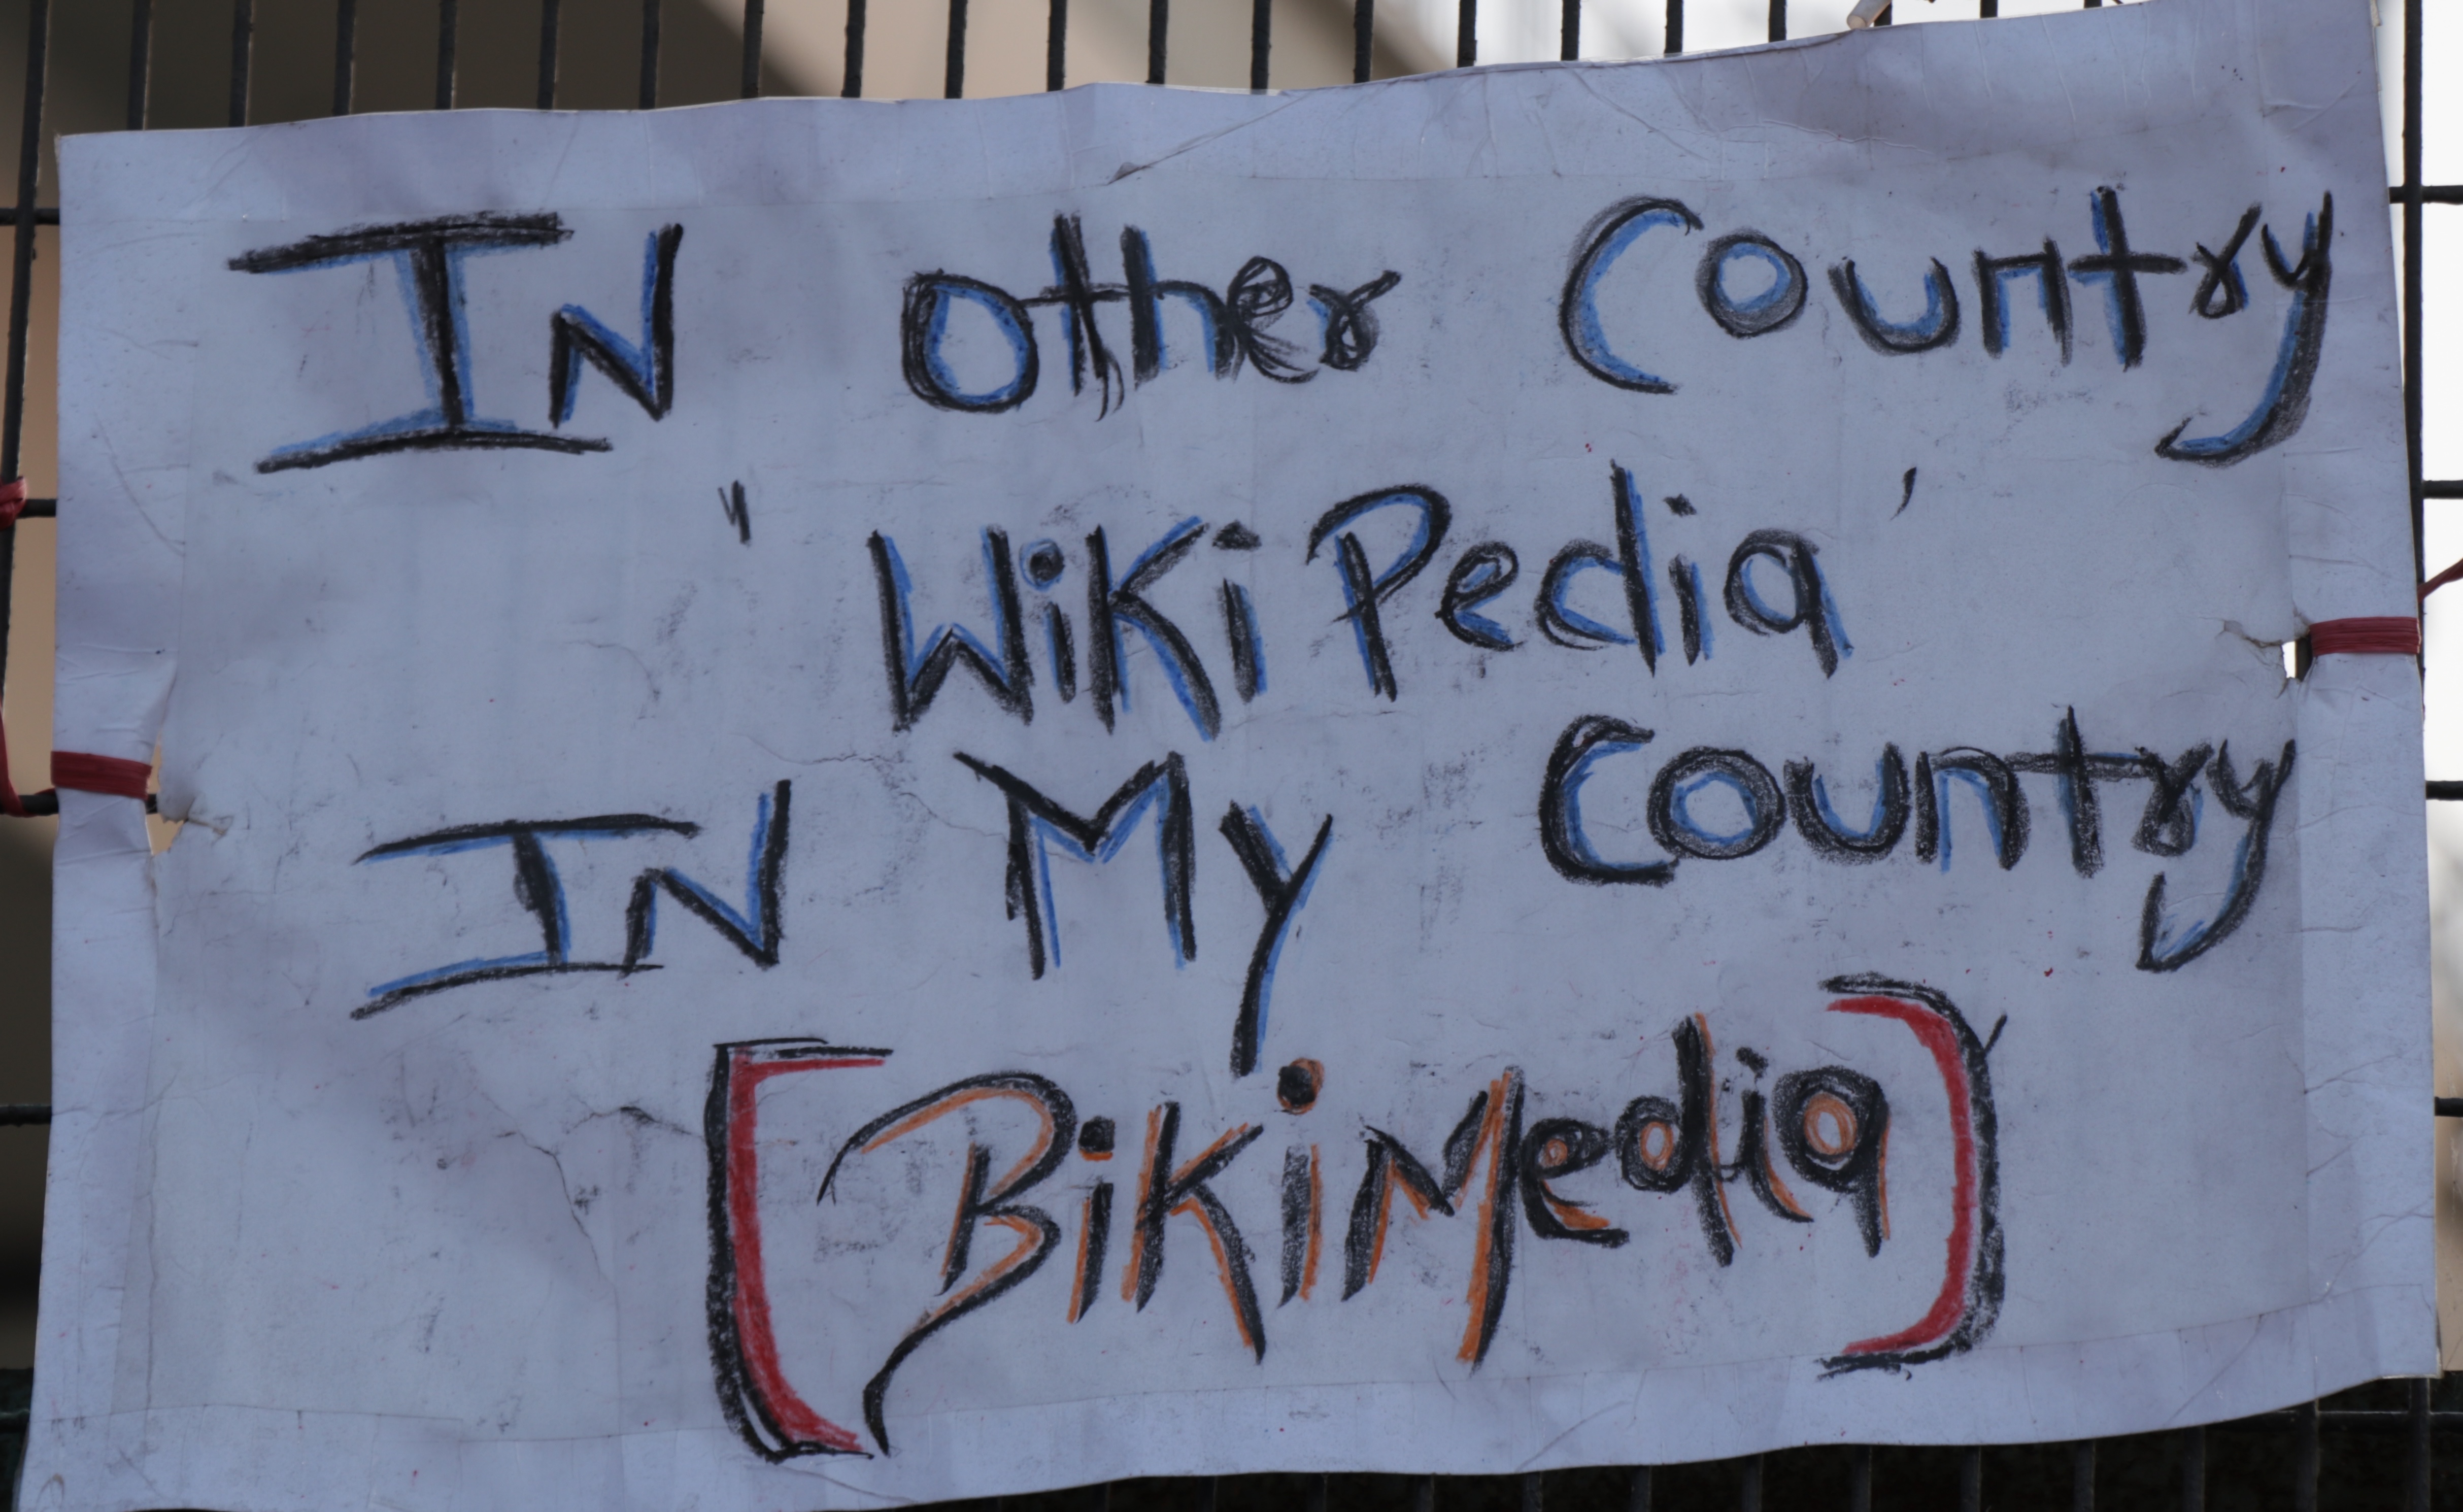 IN other Country
" WikiPedia '
IN My Country
[BikiMedia]